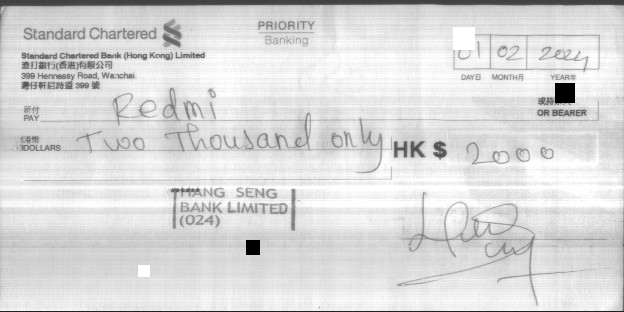 Standard Chartered
PRIORITY
Banking
Standard Chartered Bank (Hong Kong) Limited
渣打銀行(香港)有限公司
399 Hennessy Road, Wanchai
灣仔軒尼詩道 399 號
01 02 2024
DAY日 MONTH月 YEAR年
祈付
PAY Redmi
或持票人
OR BEARER
港幣
DOLLARS Two Thousand only HK $ 2000
HANG SENG
BANK LIMITED
(024)